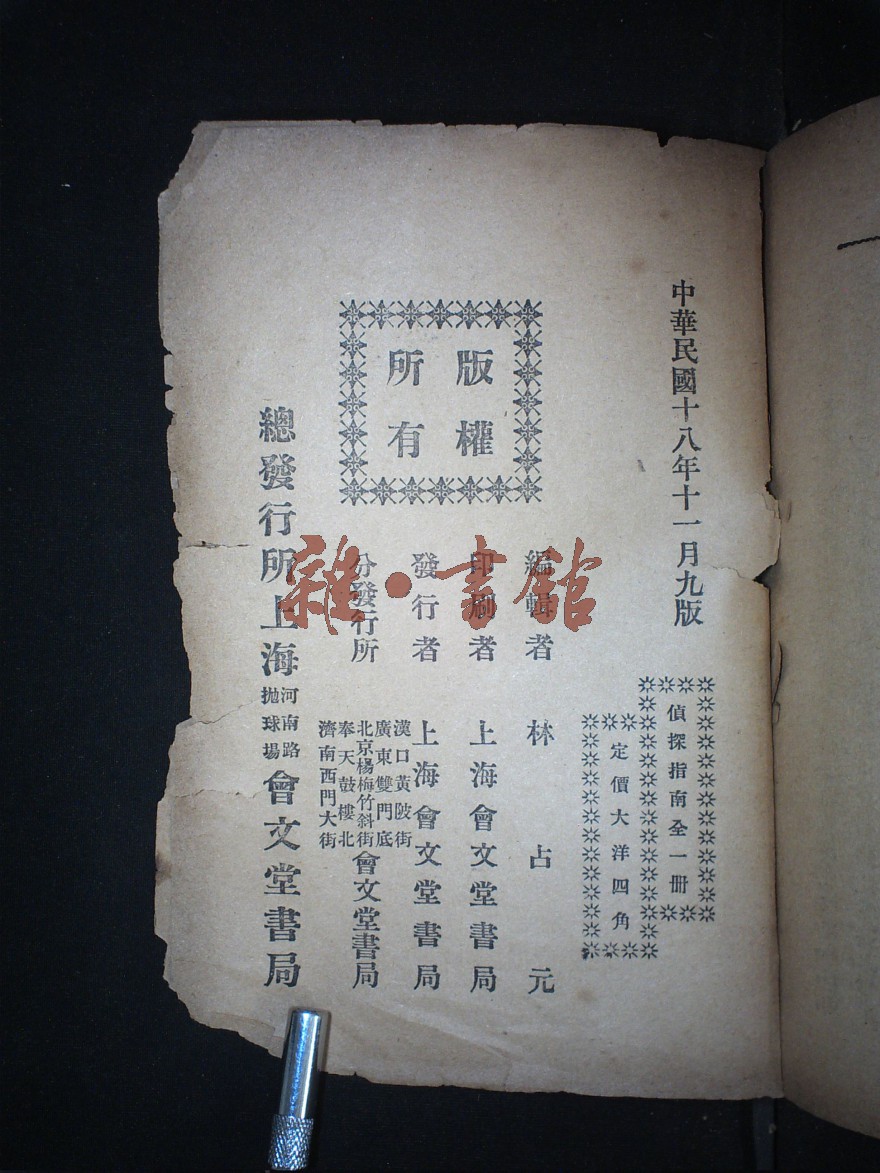 中華民國十八年十一月九版
偵探指南全一冊
定價大洋四角
版權
所有
編輯者 林占元
印刷者 上海會文堂書局
發行者 上海會文堂書局
分發行所
漢口黃陂街
廣東雙門底
北京楊梅竹斜街
奉天鼓樓北
濟南西門大街
會文堂書局
總發行所上海
河南路
拋球場
會文堂書局
雜·書館